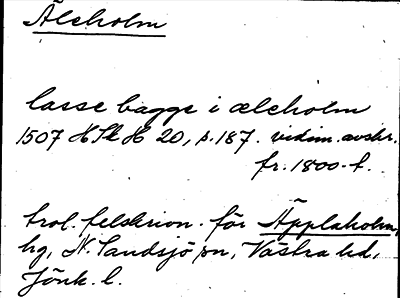 Älcholm
lasse bagge i ælcholm
1507 HSkH 20, s. 187. vidim. avskr.
fr. 1800-t.
trol. felskrivn. för Äpplaholm,
hg, N. Sandsjö sn, Västra hd,
Jönk. l.